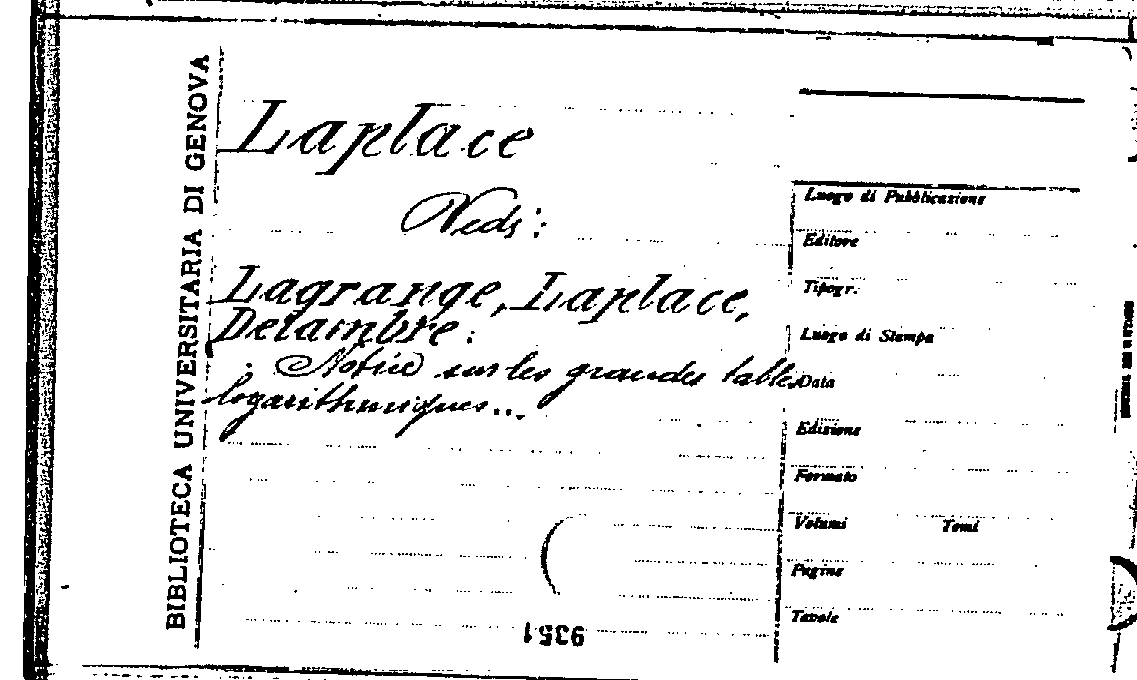 BIBLIOTECA UNIVERSITARIA DI GENOVA
Laplace
Veds:
Lagrange, Laplace,
Delambre:
Notice sur les grandes tables
logarithmiques...
Luogo di Pubblicazione
Editore
Tipogr.
Luogo di Stampa
Data
Edizione
Formato
Volumi Tomi
Pagine
Tavole
9351